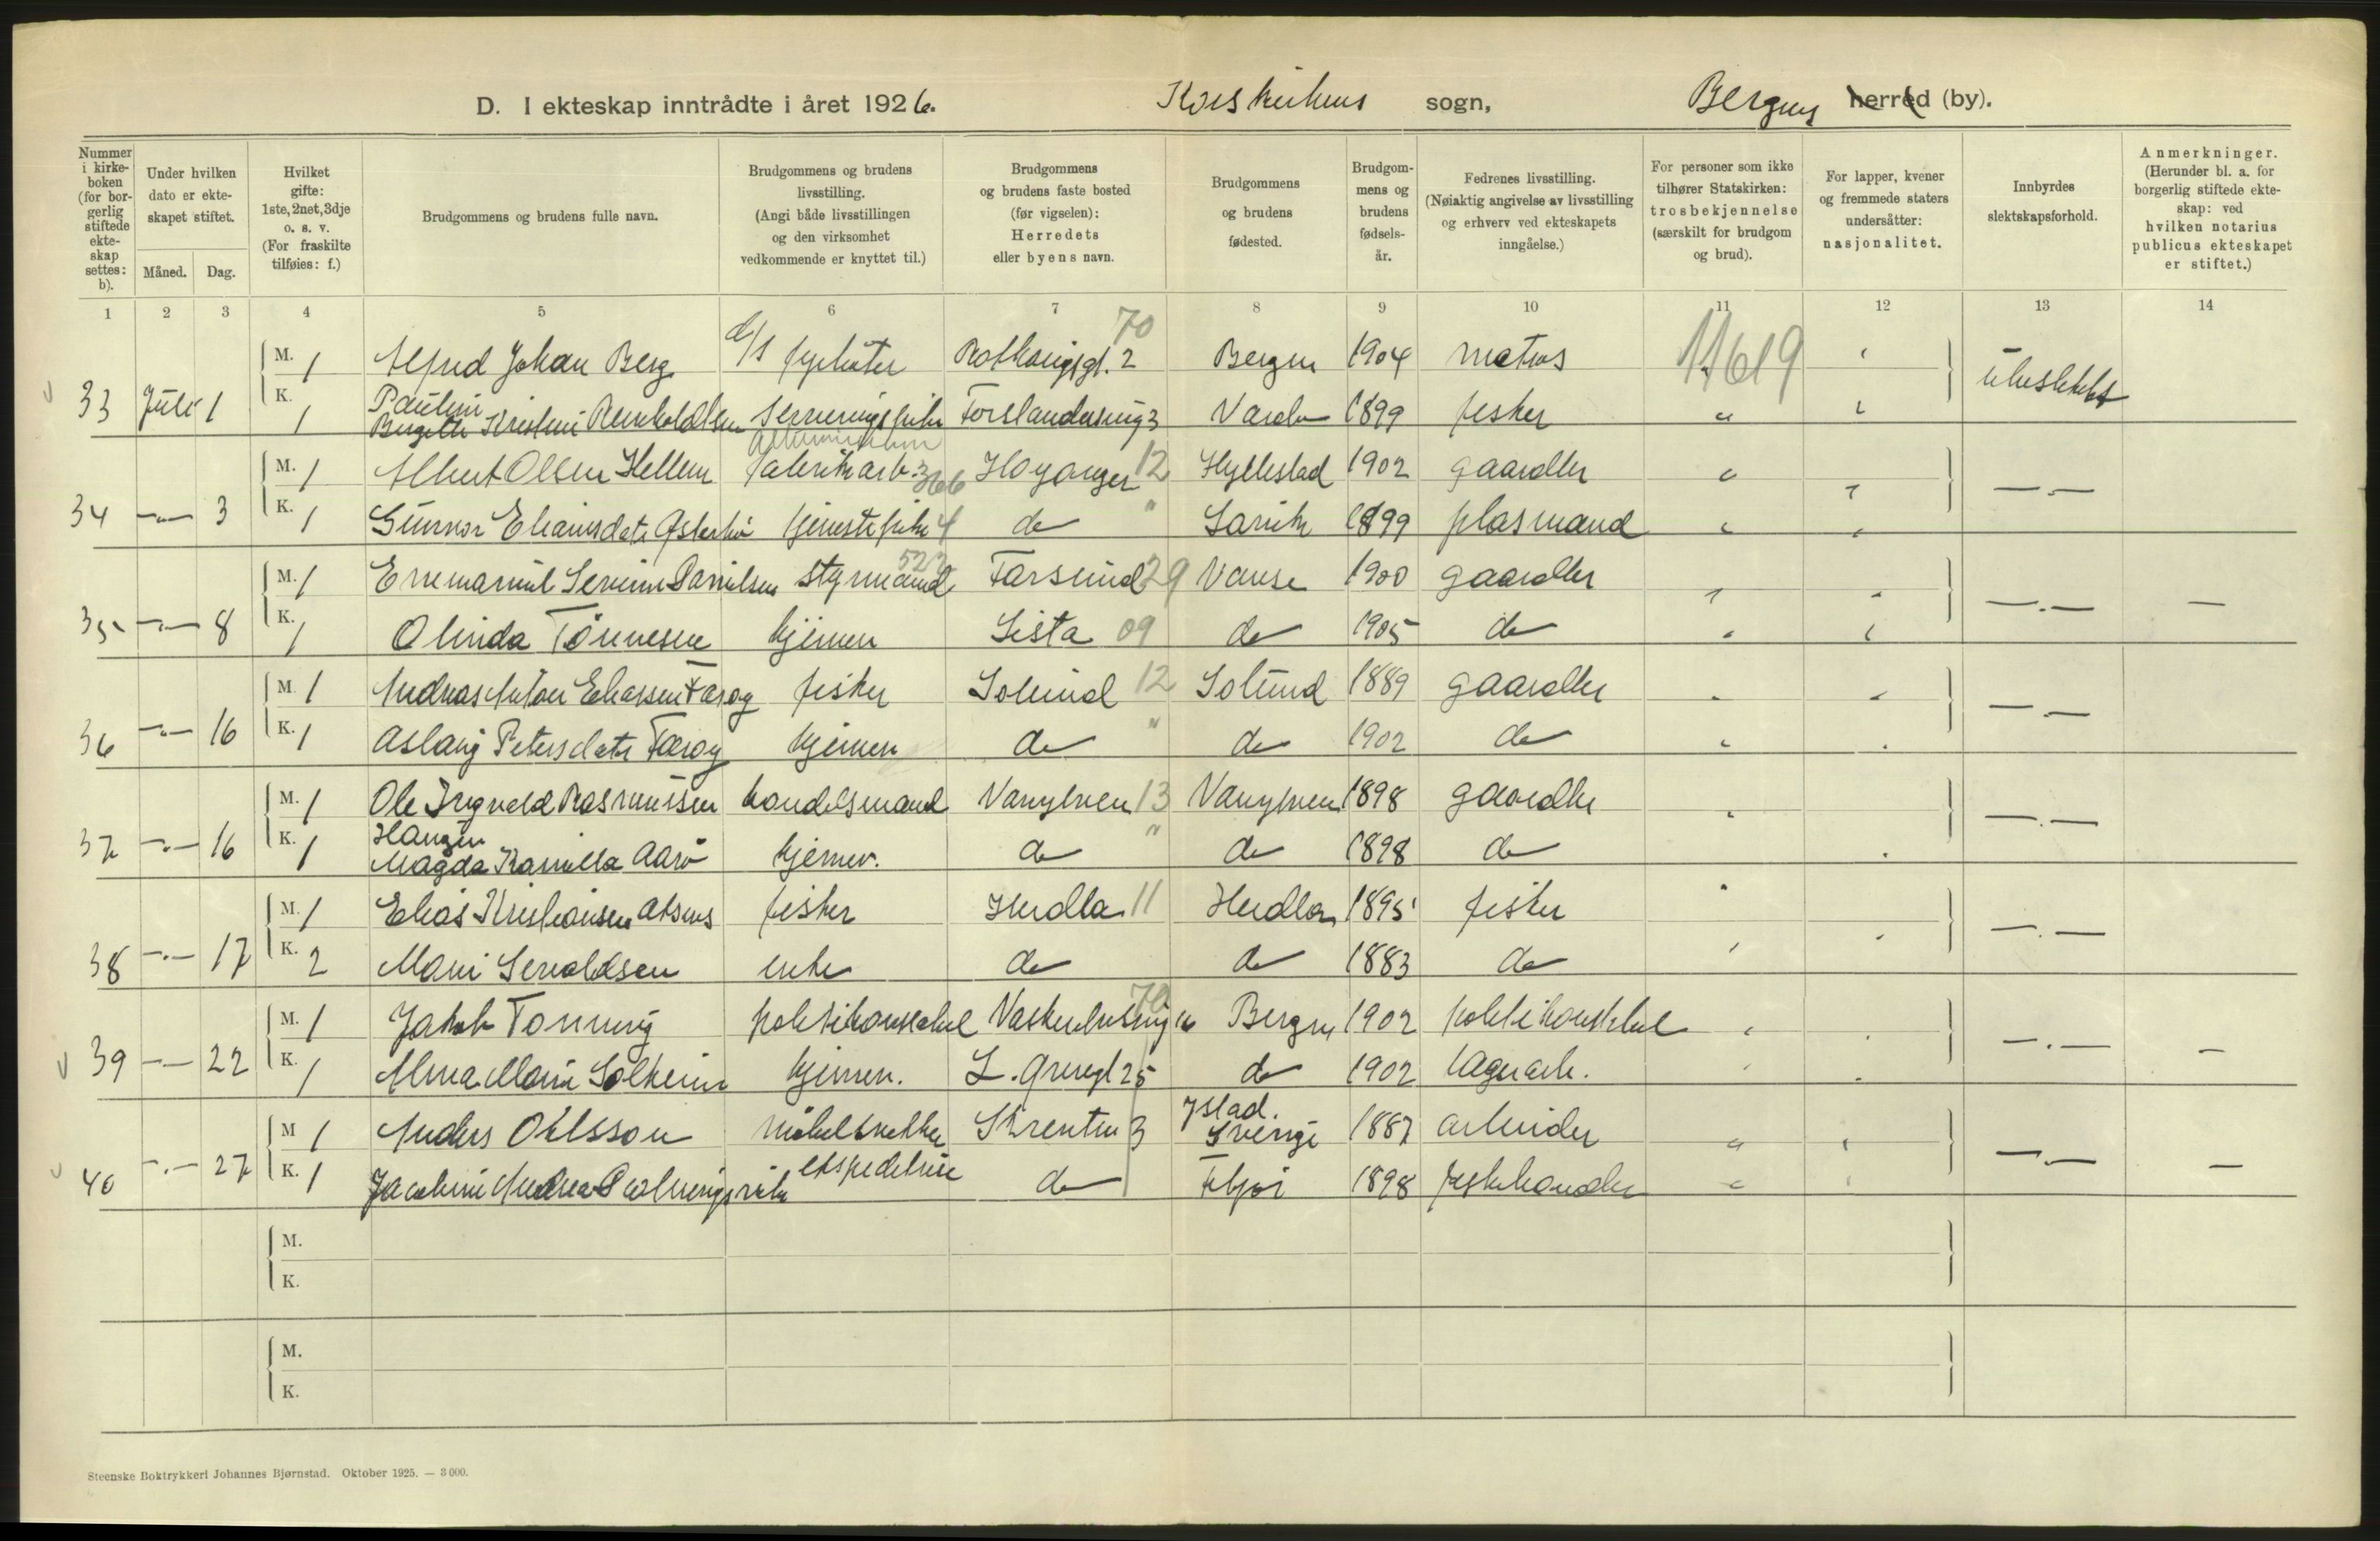 D. I ekteskap inntrådte i året 1926. Korskirkens sogn, Bergens herred (by).
Nummer i kirkeboken (for borgerlig stiftede ekteskap settes: b).
Under hvilken dato er ekteskapet stiftet.
Måned. Dag.
Hvilket gifte: 1ste, 2net, 3dje o. s. v. (For fraskilte tilføies: f.)
Brudgommens og brudens fulle navn.
Brudgommens og brudens livsstilling. (Angi både livsstillingen og den virksomhet vedkommende er knyttet til.)
Brudgommens og brudens faste bosted (før vigselen): Herredets eller byens navn.
Brudgommens og brudens fødested.
Brudgommens og brudens fødselsår.
Fedrenes livsstilling. (Nøiaktig angivelse av livsstilling og erhverv ved ekteskapets inngåelse.)
For personer som ikke tilhører Statskirken: trosbekjennelse (særskilt for brudgom og brud).
For lapper, kvener og fremmede staters undersåtter: nasjonalitet.
Innbyrdes slektskapsforhold.
Anmerkninger. (Herunder bl. a. for borgerlig stiftede ekteskap: ved hvilken notarius publicus ekteskapet er stiftet.)
1 2 3 4 5 6 7 8 9 10 11 12 13 14
70
M. 1 Alfred Johan Berg d/s fyrbøter 2 Bergen 1904 matros 11619
33 Juli 1 ubeslektet
Pauline
K. 1 Birgitte Kristine Reinholdtsen Serveringspike 3 Vardø 1899 fisker "
M. 1 Albert Olsen Hellem fabrikarb. 366 Høyanger 12 Hyllestad 1902 gaardbr "
34 -"- 3 —.—
K. 1 Gunnor tjenestepike 4 do " Lavik 1899 plasmand "
522
M. 1 Severin Danielsen styrmand Farsund 29 Vanse 1900 gaardbr "
35 -"- 8 —.— —
K. 1 Olinda Tönnesen hjemme Lista 09 do 1905 do "
M. 1 Andreas Anton Eliassen Færøy fisker Solund 12 Solund 1889 gaardbr "
36 -"- 16 —.—
K. 1 Aslaug Petersdatr Færøy hjemme do " do 1902 do "
M. 1 Ole Ingvald Rasmussen handelsmand Vanylven 13 Vanylven 1898 gaardbr "
37 -"- 16 —.—
Haugen
K. 1 Magda Kamilla Aarö hjemme. do " do 1898 do
M. 1 Elias Kristiansen fisker Herdla 11 Herdla 1895 fisker "
38 -"- 17 —.—
K. 2 Marie enke do do 1883 do
70
M. 1 Jakob Tonning politikonstabel 16 Bergen 1902 politikonstabel "
39 -"- 22 —.— —
K. 1 Alma Marie Solheim hjemme. 25 do 1902 lagerarb.
Ystad.
M 1 Anders Ohlsson möbelsnekker Skrenten 3 Sverige 1887 arbeider "
40 -"- 27 —.— —
K. 1 Jacobine Andrea ekspeditrise do 1898 fiskehandler "
M.
K.
M.
K.
Steenske Boktrykkeri Johannes Bjørnstad. Oktober 1925. — 3 000.